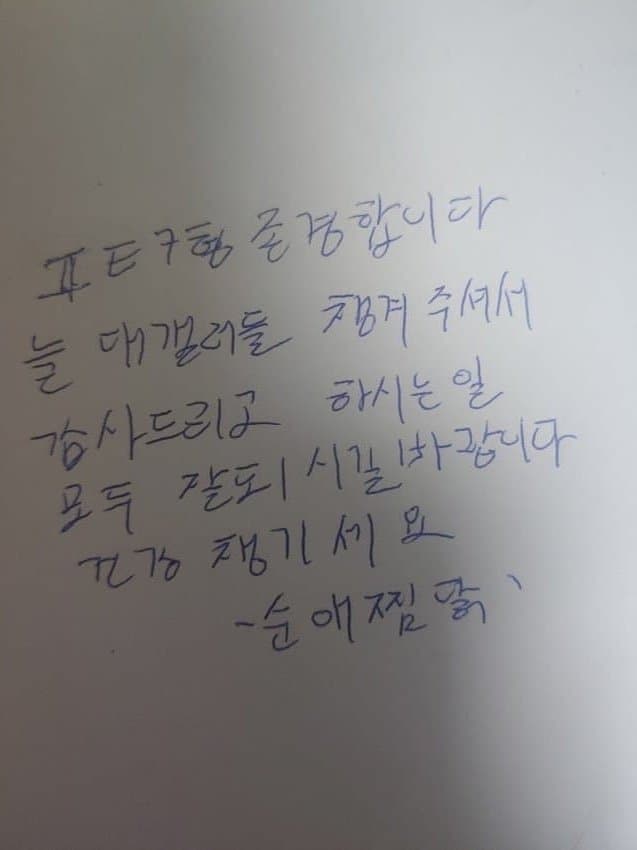 ㅍE구형 존경합니다
늘 대갤러들 챙겨 주셔서
감사드리고 하시는 일
모두 잘되시길 바랍니다
건강 챙기세요
-순애찜닭-